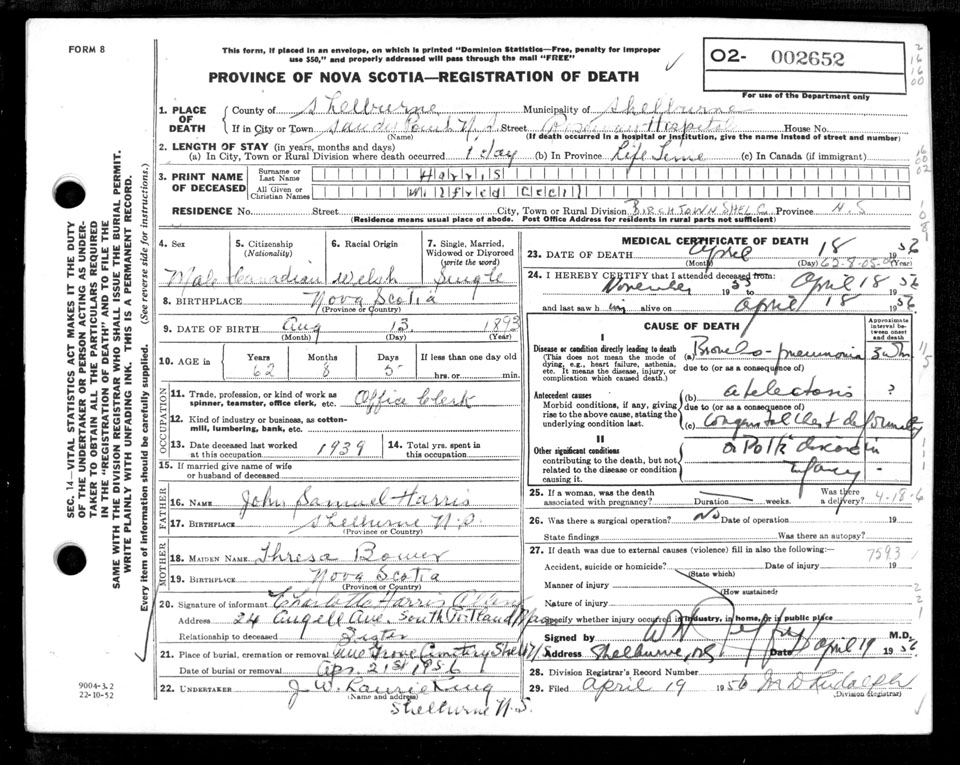 FORM 8
This form, if placed in an envelope, on which is printed "Dominion Statistics—Free, penalty for improper
use $50," and properly addressed will pass through the mail "FREE"
O2- 002652
For use of the Department only
PROVINCE OF NOVA SCOTIA—REGISTRATION OF DEATH
1. PLACE OF DEATH
County of Shelburne Municipality of Shelburne
If in City or Town Sandy Point N.S. Street Hospital House No.
(Name) (If death occurred in a hospital or institution, give the name instead of street and number)
2. LENGTH OF STAY (in years, months and days)
(a) In City, Town or Rural Division where death occurred 1 day (b) In Province Life Time (c) In Canada (if immigrant)
3. PRINT NAME OF DECEASED
Surname or Last Name Harris
All Given or Christian Names Milfred Cecil
RESIDENCE No. Street City, Town or Rural Division BIRCHTOWN SHEL C. Province N.S
(Residence means usual place of abode. Post Office Address for residents in rural parts not sufficient)
4. Sex
5. Citizenship (Nationality)
6. Racial Origin
7. Single, Married, Widowed or Divorced (write the word)
Male Canadian Welsh Single
8. BIRTHPLACE Nova Scotia
(Province or Country)
9. DATE OF BIRTH Aug 13 1893
(Month) (Day) (Year)
10. AGE in Years Months Days If less than one day old
62 8 5 hrs. or min.
OCCUPATION
11. Trade, profession, or kind of work as spinner, teamster, office clerk, etc. Office Clerk
12. Kind of industry or business, as cotton-mill, lumbering, bank, etc.
13. Date deceased last worked at this occupation 1939
14. Total yrs. spent in this occupation
15. If married give name of wife or husband of deceased
FATHER
16. NAME John Samuel Harris
17. BIRTHPLACE Shelburne N.S.
(Province or Country)
MOTHER
18. MAIDEN NAME Thresa Bower
19. BIRTHPLACE Nova Scotia
(Province or Country)
20. Signature of informant Charlotte Harris
Address 24 Angell Ave. South Portland Maine
Relationship to deceased Sister
21. Place of burial, cremation or removal Pine Grove Cemetery Shel N.S
Date of burial or removal Apr. 21st 1956
22. UNDERTAKER J. W. Laurie King
(Name and address)
Shelburne N.S.
MEDICAL CERTIFICATE OF DEATH
23. DATE OF DEATH April 18 1956
(Month) (Day) (Year)
62-8-05-
24. I HEREBY CERTIFY that I attended deceased from:
November 1955 April 18 1956
and last saw him alive on April 18 1956
CAUSE OF DEATH
Approximate interval between onset and death
I
Disease or condition directly leading to death
(This does not mean the mode of dying, e.g., heart failure, asthenia, etc. It means the disease, injury, or complication which caused death.)
(a) Broncho-pneumonia
due to (or as a consequence of)
Antecedent causes
Morbid conditions, if any, giving rise to the above cause, stating the underlying condition last.
(b) atelectosis ?
due to (or as a consequence of)
(c) Congenital Chest deformity
II
Other significant conditions
contributing to the death, but not related to the disease or condition causing it.
or Pott's disease in
infancy -
25. If a woman, was the death associated with pregnancy? Duration weeks. Was there a delivery? 4-18-6
26. Was there a surgical operation? No Date of operation 19
State findings Was there an autopsy?
27. If death was due to external causes (violence) fill in also the following:- 7593
Accident, suicide or homicide? Date of injury 19
(State which)
Manner of injury
(How sustained)
Nature of injury
Specify whether injury occurred in industry, in home, or in public place
Signed by M.D.
Address Shelburne, NS Date April 19 1956
28. Division Registrar's Record Number
29. Filed April 19 1956 Rudolph
(Division Registrar)
SEC. 14—VITAL STATISTICS ACT MAKES IT THE DUTY
OF THE UNDERTAKER OR PERSON ACTING AS UNDER-
TAKER TO OBTAIN ALL THE PARTICULARS REQUIRED
IN THE "REGISTRATION OF DEATH" AND TO FILE THE
SAME WITH THE DIVISION REGISTRAR WHO SHALL ISSUE THE BURIAL PERMIT.
WRITE PLAINLY WITH UNFADING INK. THIS IS A PERMANENT RECORD.
Every item of information should be carefully supplied. (See reverse side for instructions.)
9004-3.2
22-10-52